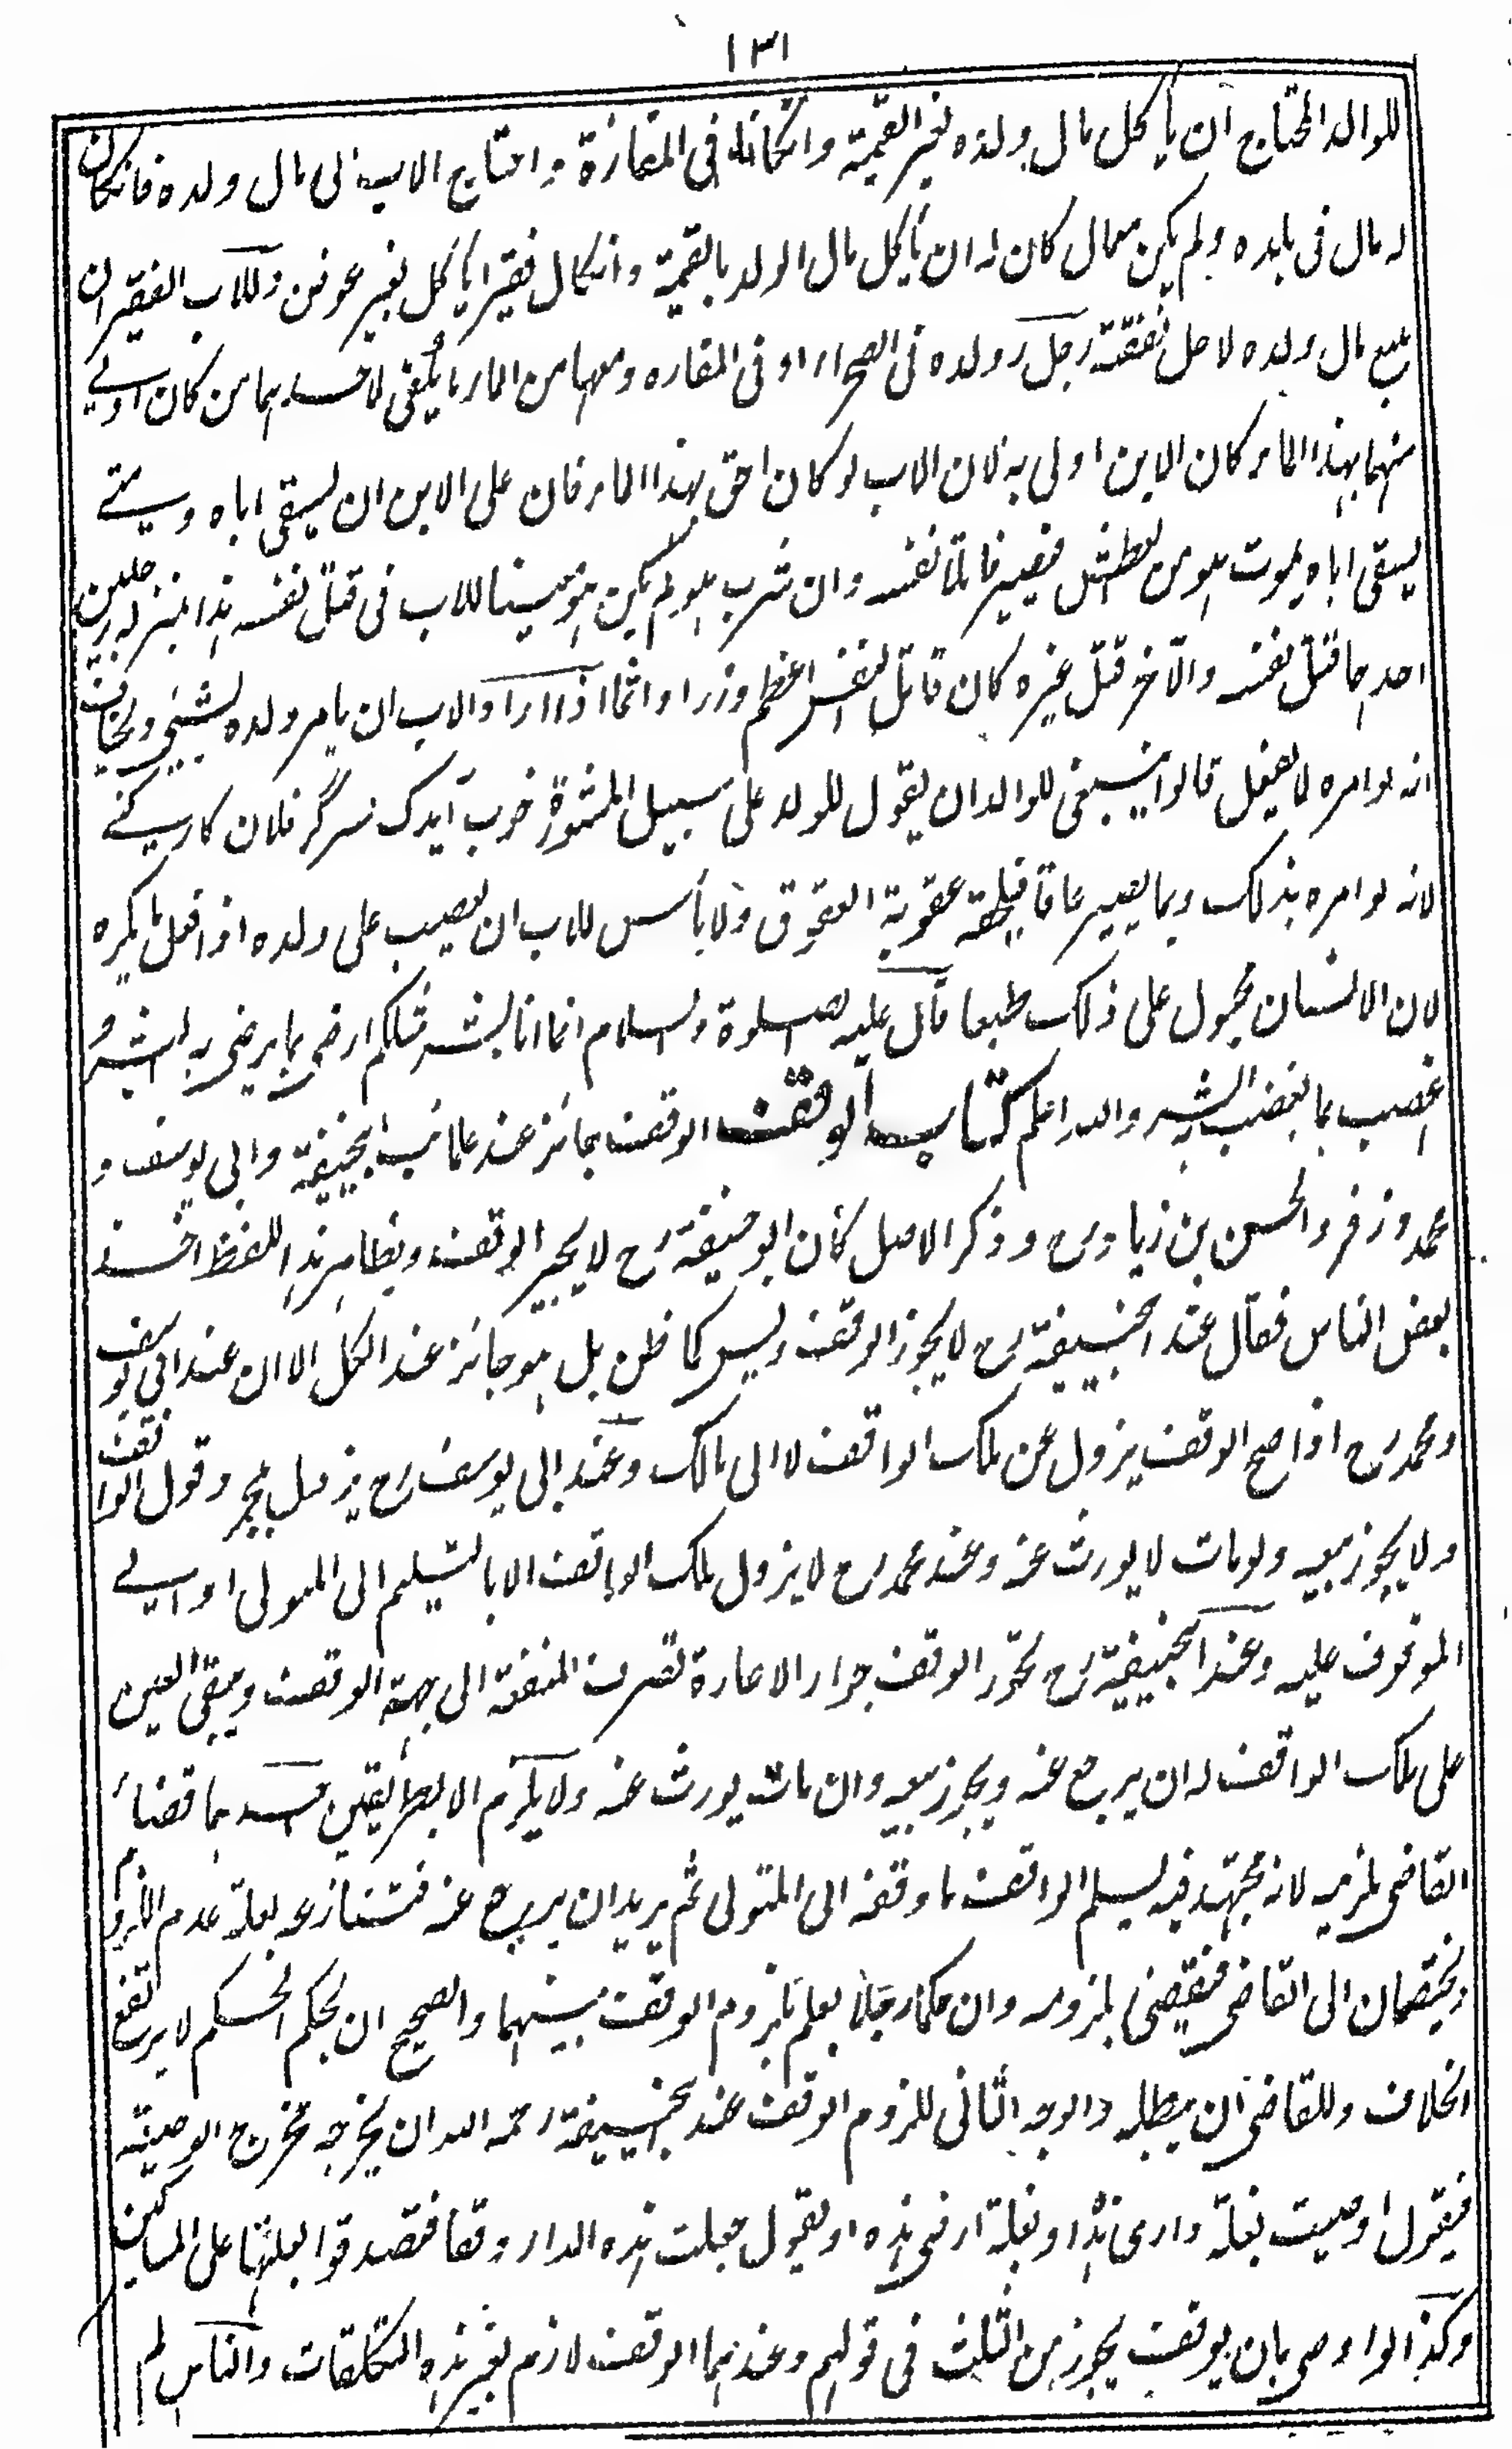 ١٣١
للوالد المحتاج ان يأكل مال ولده بغير القيمة وانكانا فى المفازة و احتاج الاب الى مال ولده فانكان
له مال فى بلده ولم يكن معه مال كان له ان يأكل مال الولد بالقيمة وانكان فقيرا يأكل بغير عوض وللاب الفقير ان
يبيع مال ولده لاجل نفقته رجل و ولده فى الصحراء او فى المفازه ومعهما من الماء ما يكفى لاحدهما من كان اولى
منهما بهذا الماء كان الابن اولى به لان الاب لو كان احق بهذا الماء فان على الابن ان يسقى اباه ومتى
يسقى اباه يموت هو من العطش فيصير قاتلا نفسه وان شرب هو لم يكن هو معينا للاب فى قتل نفسه هذا بمنزلة رجلين
احدهما قتل نفسه والآخر قتل غيره كان قاتل النفس اعظم وزرا واثما اذا اراد الاب ان يامر ولده بشيئ ويخاف
انه لو امره لا يفعل قالوا ينبغى للوالد ان يقول للولد على سبيل المشورة خوب آيدك پسر گر فلان كار كنى
لانه لو امره بذلك ربما يصير عاقا فيلحقه عقوبة العقوق ولا بأس للاب ان يغضب على ولده اذا فعل ما يكره
لان الانسان مجبول على ذلك طبعا قال عليه الصلوة والسلام انما انا بشر مثلكم ارضى بما يرضى به البشر و
اغضب بما يغضب به البشر والله اعلم كتاب الوقف الوقف جائز عند علمائنا ابيحنيفة وابى يوسف و
محمد وزفر والحسن بن زياد رح و ذكر الاصل كان ابو حنيفة رح لا يجيز الوقف وبظاهر هذا اللفظ اخذ
بعض الناس فقال عند ابيحنيفة رح لا يجوز الوقف وليس كما ظن بل هو جائز عند الكل الا ان عند ابى يوسف
ومحمد رح اذا صح الوقف يزول عن ملك الواقف لا الى مالك وعند ابى يوسف رح يزول بمجرد قول الواقف
ولا يجوز بيعه ولو مات لا يورث عنه وعند محمد رح لا يزول ملك الواقف الا بالتسليم الى المتولى او الى
الموقوف عليه وعند ابيحنيفة رح يجوز الوقف جواز الاعارة تصرف المنفعة الى جهة الوقف ويبقى العين
على ملك الواقف له ان يرجع عنه ويجوز بيعه وان مات يورث عنه ولا يلزم الا بطريقين احدهما قضاء
القاضى بلزومه لانه مجتهد فيه يسلم الواقف ما وقفه الى المتولى ثم يريد ان يرجع عنه فتنازعه بعلة عدم اللزوم
ويختصمان الى القاضى فيقضى بلزومه وان حكما رجلا بلزوم الوقف بينهما والصحيح ان بحكم الحكم لا يرتفع
الخلاف وللقاضى ان يبطله والوجه الثانى للزوم الوقف عند ابيحنيفة رحمه الله ان يخرجه مخرج الوصية
فيقول اوصيت بغلة دارى هذا او بغلة ارضى هذه او يقول جعلت هذه الدار وقفا فتصدقوا بغلتها على المساكين
وكذا لو اوصى بان يوقف يجوز من الثلث فى قولهم وعندهما الوقف لازم بغير هذه التكلفات والناس لم